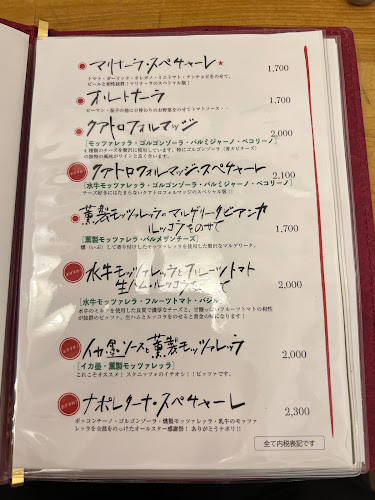 マリナーラ・スペチャーレ★
トマト・ガーリック・オレガノ・ミニトマト・アンチョビをのせて、
ビールと相性抜群!マリナーラのスペシャル版!
1,700
オルトナーラ
ピーマン・茄子の他に日替わりのお野菜をのせてトマトソース・・
1,700
クアトロフォルマッジ
2,000
[モッツァレッラ・ゴルゴンゾーラ・パルミジャーノ・ペコリーノ]
4種類のチーズを贅沢に使用しています。特にゴルゴンゾーラ(青カビチーズ)
の独特の風味がワインと良く合います。
クアトロフォルマッジ・スペチャーレ
2,100
[水牛モッツァレッラ・ゴルゴンゾーラ・パルミジャーノ・ペコリーノ]
チーズ好きにはたまらないクアトロフォルマッジのスペシャル版!!
薫製モッツァレッラのマルゲリータビアンカ
ルッコラをのせて
1,700
[薫製モッツァレラ・パルメザンチーズ]
燻(いぶ)して香り付けしたモッツァレラを使用した贅沢なマルゲリータ。
水牛モッツァレッラとフルーツトマト
生ハム・ルッコラをのせて
2,000
[水牛モッツァレラ・フルーツトマト・バジル]
水牛のミルクを使用した良質で濃厚なチーズと、甘酸っぱいフルーツトマトの相性
が抜群のピッツァ。生ハムとルッコラをのせると黄金の味になります!
イカ墨ソースと薫製モッツァレッラ
2,000
[イカ墨・薫製モッツァレッラ]
これこそオススメ!スクニッツォのイチオシ!!ピッツァです。
ナポレターナ・スペチャーレ
2,300
ボッコンチーノ・ゴルゴンゾーラ・燻製モッツァレラ・乳牛のモッツァ
レッラを全部をのっけたオールスター感謝祭!ありがとうナポリ!!
全て内税表記です